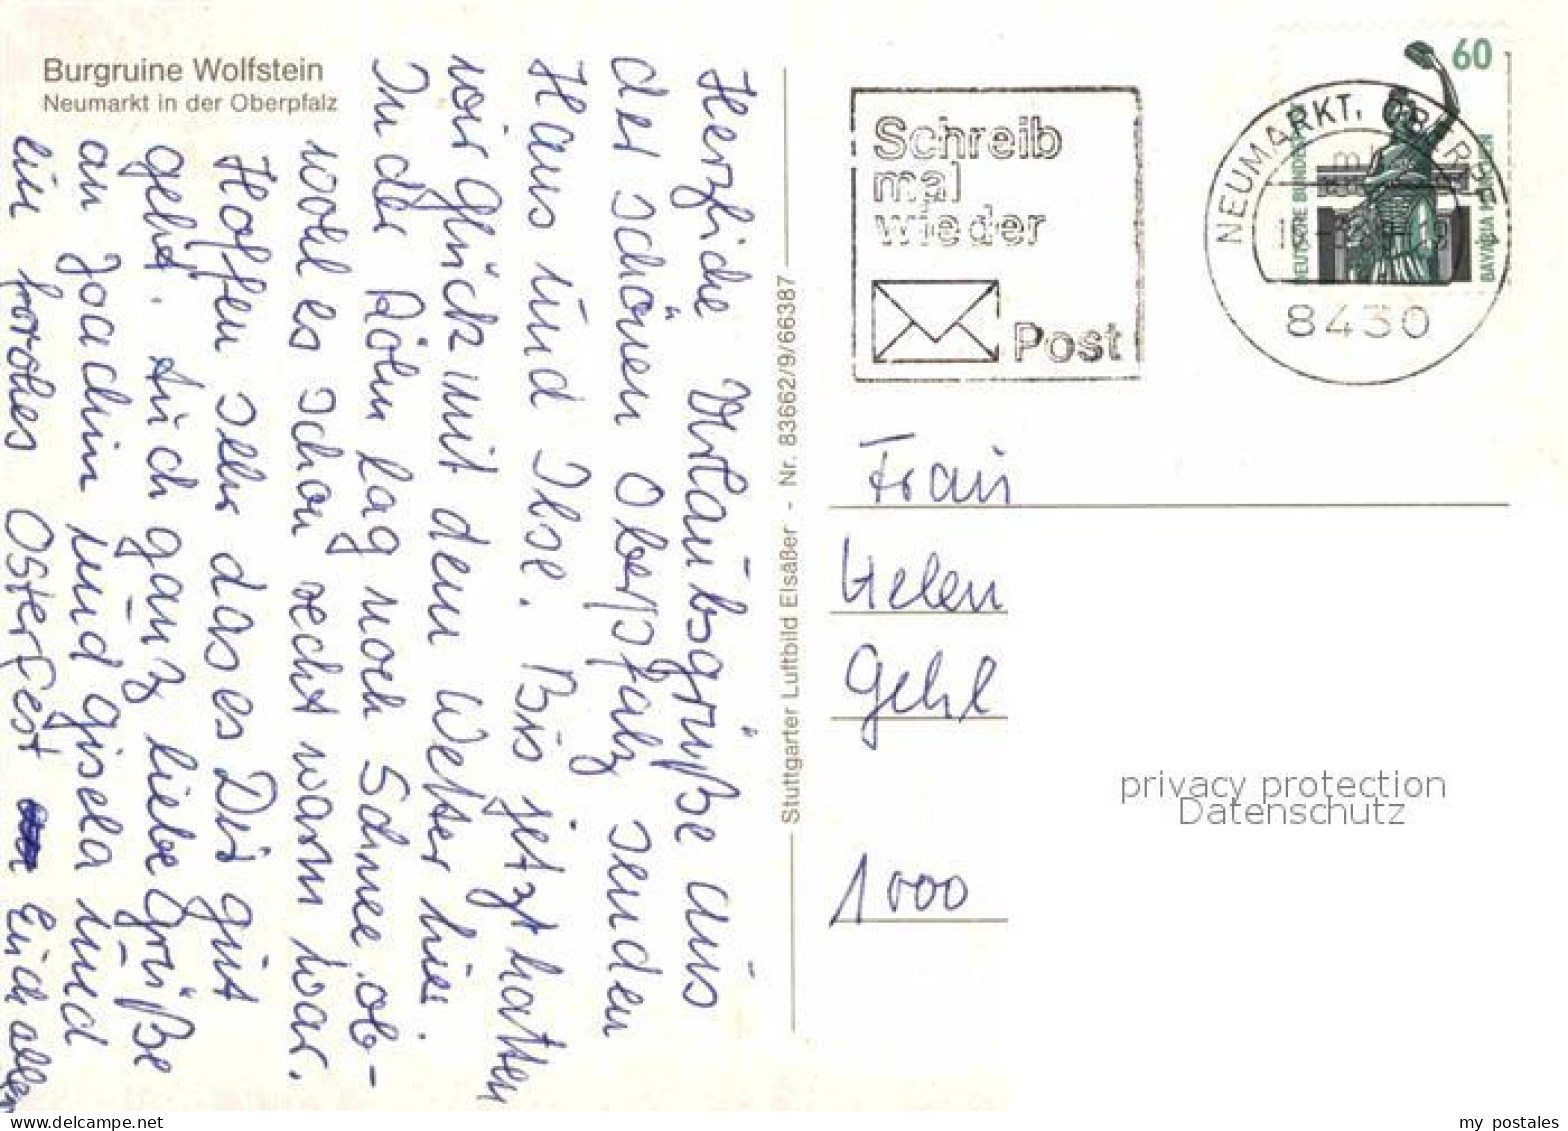 Burgruine Wolfstein
Neumarkt in der Oberpfalz
Herzliche Urlaubsgrüße aus
der schönen Oberpfalz senden
Haus und Ilse. Bis jetzt hatten
wir Glück mit dem Wetter hier.
In der Röhn lag noch Schnee ob-
wohl es schon recht warm war.
Hoffen sehr das es Dir gut
geht. Auch ganz liebe Grüße
an Joachim und Gisela und
ein frohes Osterfest Euch allen
Stuttgarter Luftbild Elsäßer - Nr. 83662/9/66387
Schreib
mal
wieder
Post
60
DEUTSCHE BUNDESPOST
BAVARIA MÜNCHEN
NEUMARKT, OBERPF
8430
Frau
Helen
Gehl
1000
privacy protection
Datenschutz
my postales